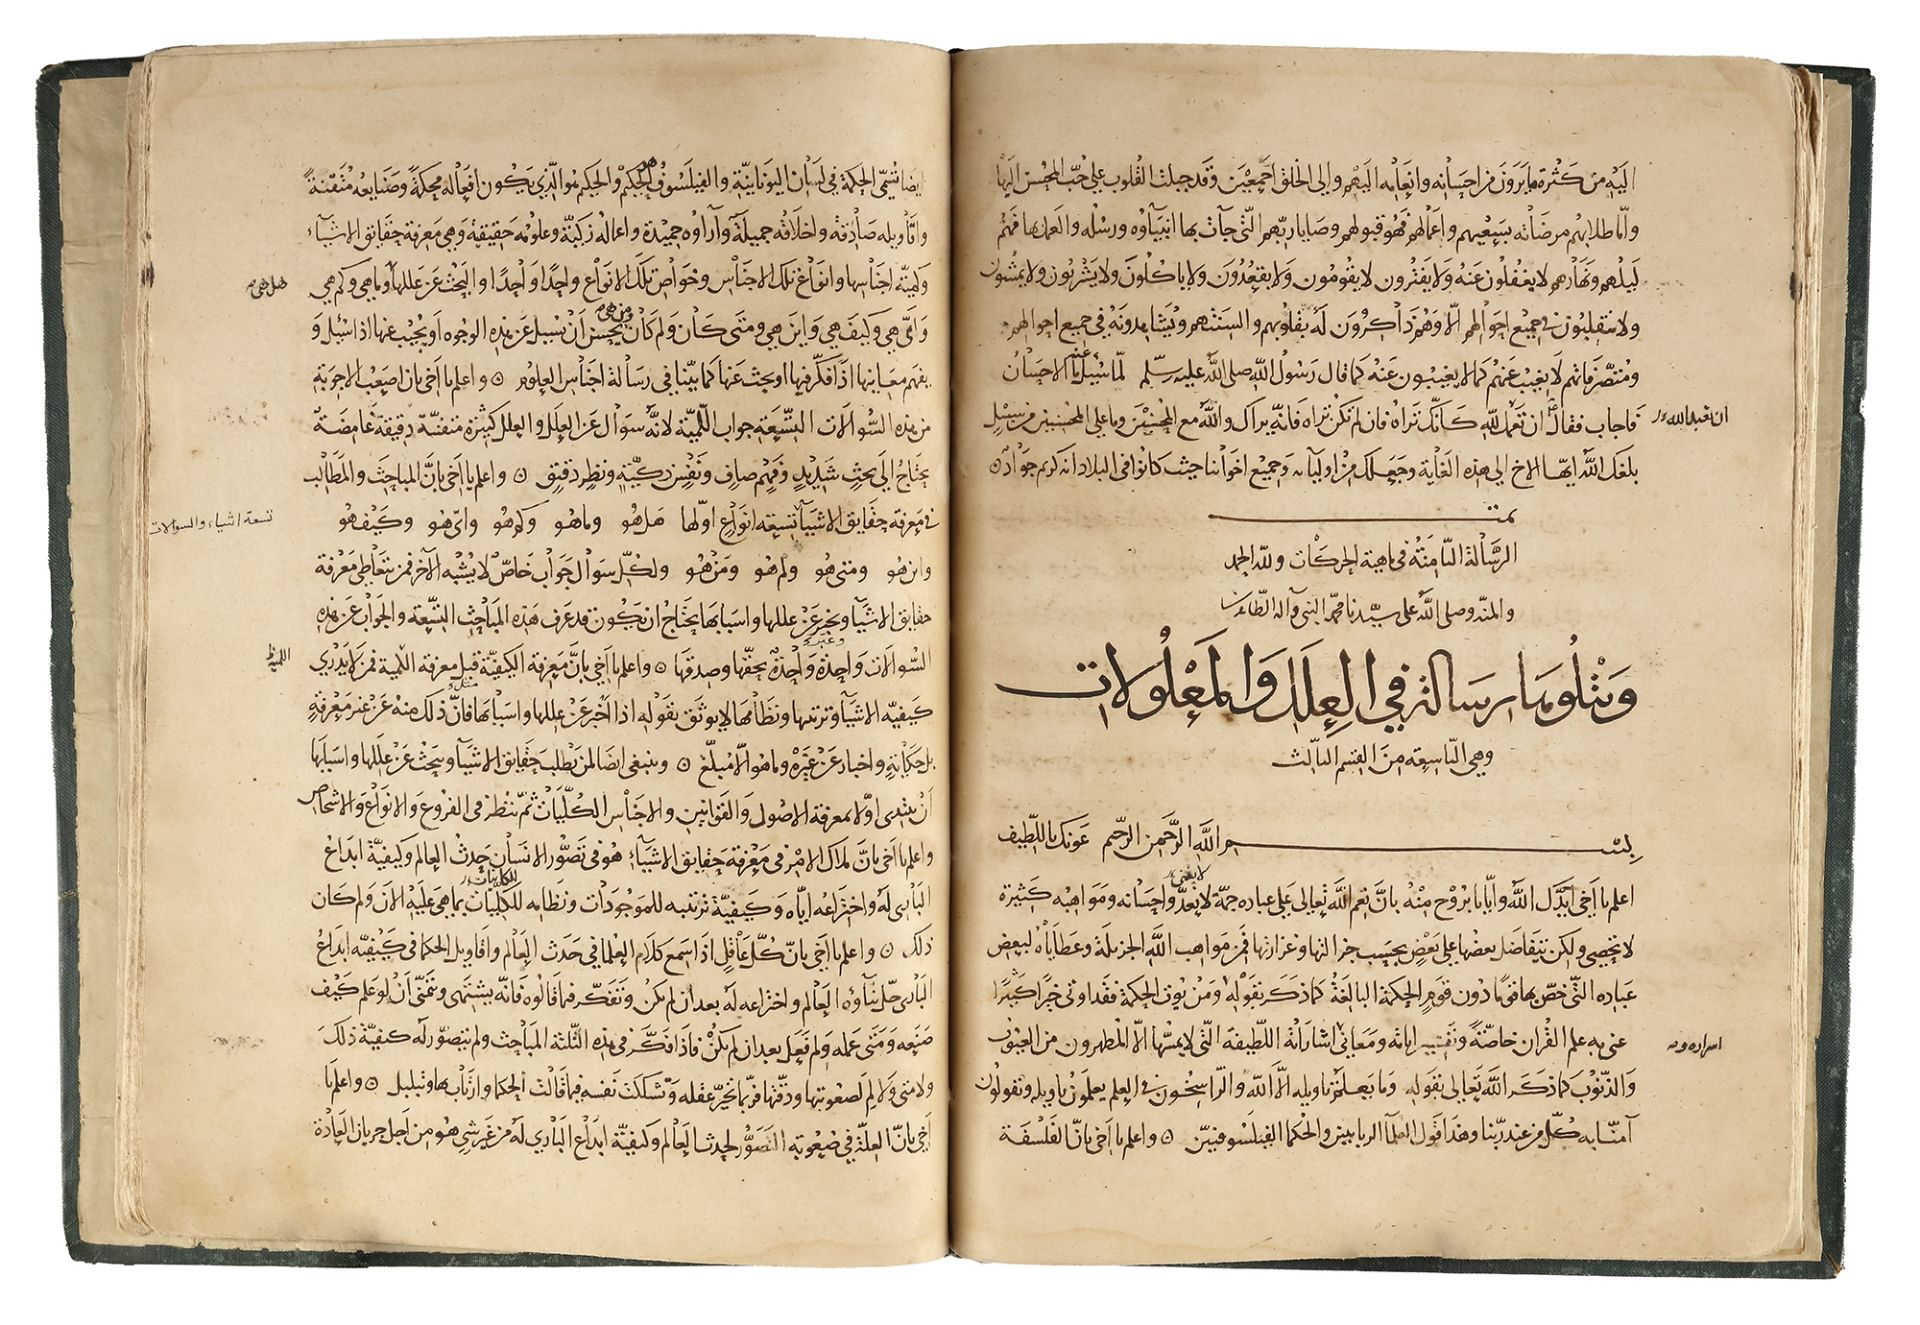 اليه من كثرة ما يرون من احسانه وانعامه اليهم والى الخلق اجمعين وقد جبلت القلوب على حب المحسن اليها
واما طلابهم مرضاته بسعيهم واعمالهم فهو قبولهم وصايا ربهم التى جآت بها انبيآوه ورسله والعمل بها فهم
ليلهم ونهارهم لا يغفلون عنه ولا يفترون لا يقومون ولا يقعدون ولا ياكلون ولا يشربون ولا يمشون
ولا ينقلبون فى جميع احوالهم الا وهم ذاكرون له بقلوبهم والسنتهم ويشاهدونه فى جميع احوالهم
ومتصرفاتهم لا يغيب عنهم كما لا يغيبون عنه كما قال رسول الله صلى الله عليه وسلم لما سئيل عنه ما الاحسان
فاجاب فقال ان تعمل لله كانك تراه فان لم تكن تراه فانه يراك والله مع المحسنين وما على المحسنين من سبيل
ان تعبد الله
بلغك الله ايها الاخ الى هذه الغاية وجعلك من اوليائه وجميع اخواننا حيث كانوا فى البلاد انه كريم جواد
تمت
الرسالة الثامنة فى ماهية الحركات ولله الحمد
والمنه وصلى الله على سيدنا محمد النبى وآله الطاهرين
ويتلوها رسالة في العلل والمعلولات
وهى التاسعة من القسم الثالث
بسم الله الرحمن الرحيم عونك يا لطيف
اعلم يا اخى ايدك الله وايانا بروح منه بان نعم الله تعالى على عباده جمة لا تعد واحسانه ومواهبه كثيرة
لا تحصى ولكن يتفاضل بعضها على بعض بحسب جزالتها وغزارتها فمن مواهب الله الجزيلة وعطاياه لبعض
عباده التى خص بها قوما دون قوم الحكمة البالغة كما ذكر بقوله ومن يوت الحكمة فقد اوتى خيرا كثيرا
عنى به علم القران خاصة وتفسير اياته ومعانى اشاراته اللطيفة التى لا يمسها الا المطهرون من العيوب
اسراره و
والذنوب كما ذكر الله تعالى بقوله وما يعلم تاويله الا الله والراسخون فى العلم يعلمون تاويله ويقولون
آمنا به كل من عند ربنا وهذا قول العلمآ الربانيين والحكما الفيلسوفيين واعلم يا اخى بان الفلسفة
ايضا تسمى الحكمة فى لسان اليونانية والفيلسوف هو الحكيم والحكيم هو الذى يكون افعاله محكمة وصنايعه متقنة
واقاويله صادقة واخلاقه جميلة وآراوه حميدة واعماله زكية وعلومه حقيقية وهى معرفة حقائق الاشيآء
وكمية اجناسها وانواع تلك الاجناس وخواص تلك الانواع واحدا واحدا والبحث عن عللها وما هى وكم هى
هل هى
واى هى وكيف هى واين هى ومتى كان ولم كان ومن هى يحسن ان يسيل عن هذه الوجوه او يجيب عنها اذا سئيل و
يفهم معانيها اذا فكر فيها او بحث عنها كما بينا فى رسالة اجناس العلوم واعلم يا اخى بان اصعب الاجوبة
من هذه السوالات التسعة جواب اللمية لانه سوال عن العلل والعلل كثيرة متفننة دقيقة غامضة
يحتاج الى بحث شديد وفهم صاف ونفس زكية ونظر دقيق واعلم يا اخى بان المباحث والمطالب
فى معرفة حقايق الاشيآ تسعة انواع اولها هل هو وما هو وكم هو واى هو وكيف هو
تسعة اشياء والسوالات
واين هو ومتى هو ولم هو ومن هو ولكل سوال جواب خاص لا يشبه الآخر فمن يتعاطى معرفة
حقايق الاشيآ ويخبر عن عللها واسبابها يحتاج ان يكون قد عرف هذه المباحث التسعة والجواب عن هذه
السوالات واحدة واحدة بحقها وصدقها واعلم يا اخى بان معرفة الكيفية قبل معرفة اللمية فمن لا يدرى
اللمية
كيفية الاشيآ وترتيبها ونظامها لا يوثق بقوله اذا اخبر عن عللها واسبابها فان ذلك منه عن غير معرفة
بل حكاية واخبار عن غيره وما هو الا مبلغ وينبغى ايضا لمن يطلب حقايق الاشيآ ويبحث عن عللها واسبابها
ان يبتدى اولا بمعرفة الاصول والقوانين والاجناس الكليات ثم ينظر فى الفروع والانواع والاشخاص
واعلم يا اخى بان ملاك الامر فى معرفة حقايق الاشيآء هو فى تصور الانسان حدث العالم وكيفية ابداع
البارى له واختراعه اياه وكيفية ترتيبه للموجودات ونظامه للكليات بما هى عليه الآن ولم كان
ذلك واعلم يا اخى بان كل عاقل اذا سمع كلام العلما فى حدث العالم واقاويل الحكما فى كيفية ابداع
البارى جل ثناوه العالم واختراعه له بعد ان لم يكن وتفكر فيما قالوه فانه يشتهى ويتمنى ان لو علم كيف
صنعه ومتى عمله ولم فعل بعد ان لم يكن فاذا فكر فى هذه الثلثة المباحث ولم يتصور له كيفية ذلك
ولا متى ولا لم لصعوبتها ودقتها فربما تحير عقله وتشككت نفسه فيما قالت الحكما وارتاب بها وتبلبل واعلم يا
اخى بان العلة فى صعوبة التصور لحدث العالم وكيفية ابداع البارى له من غير شى هو من اجل جريان العادة